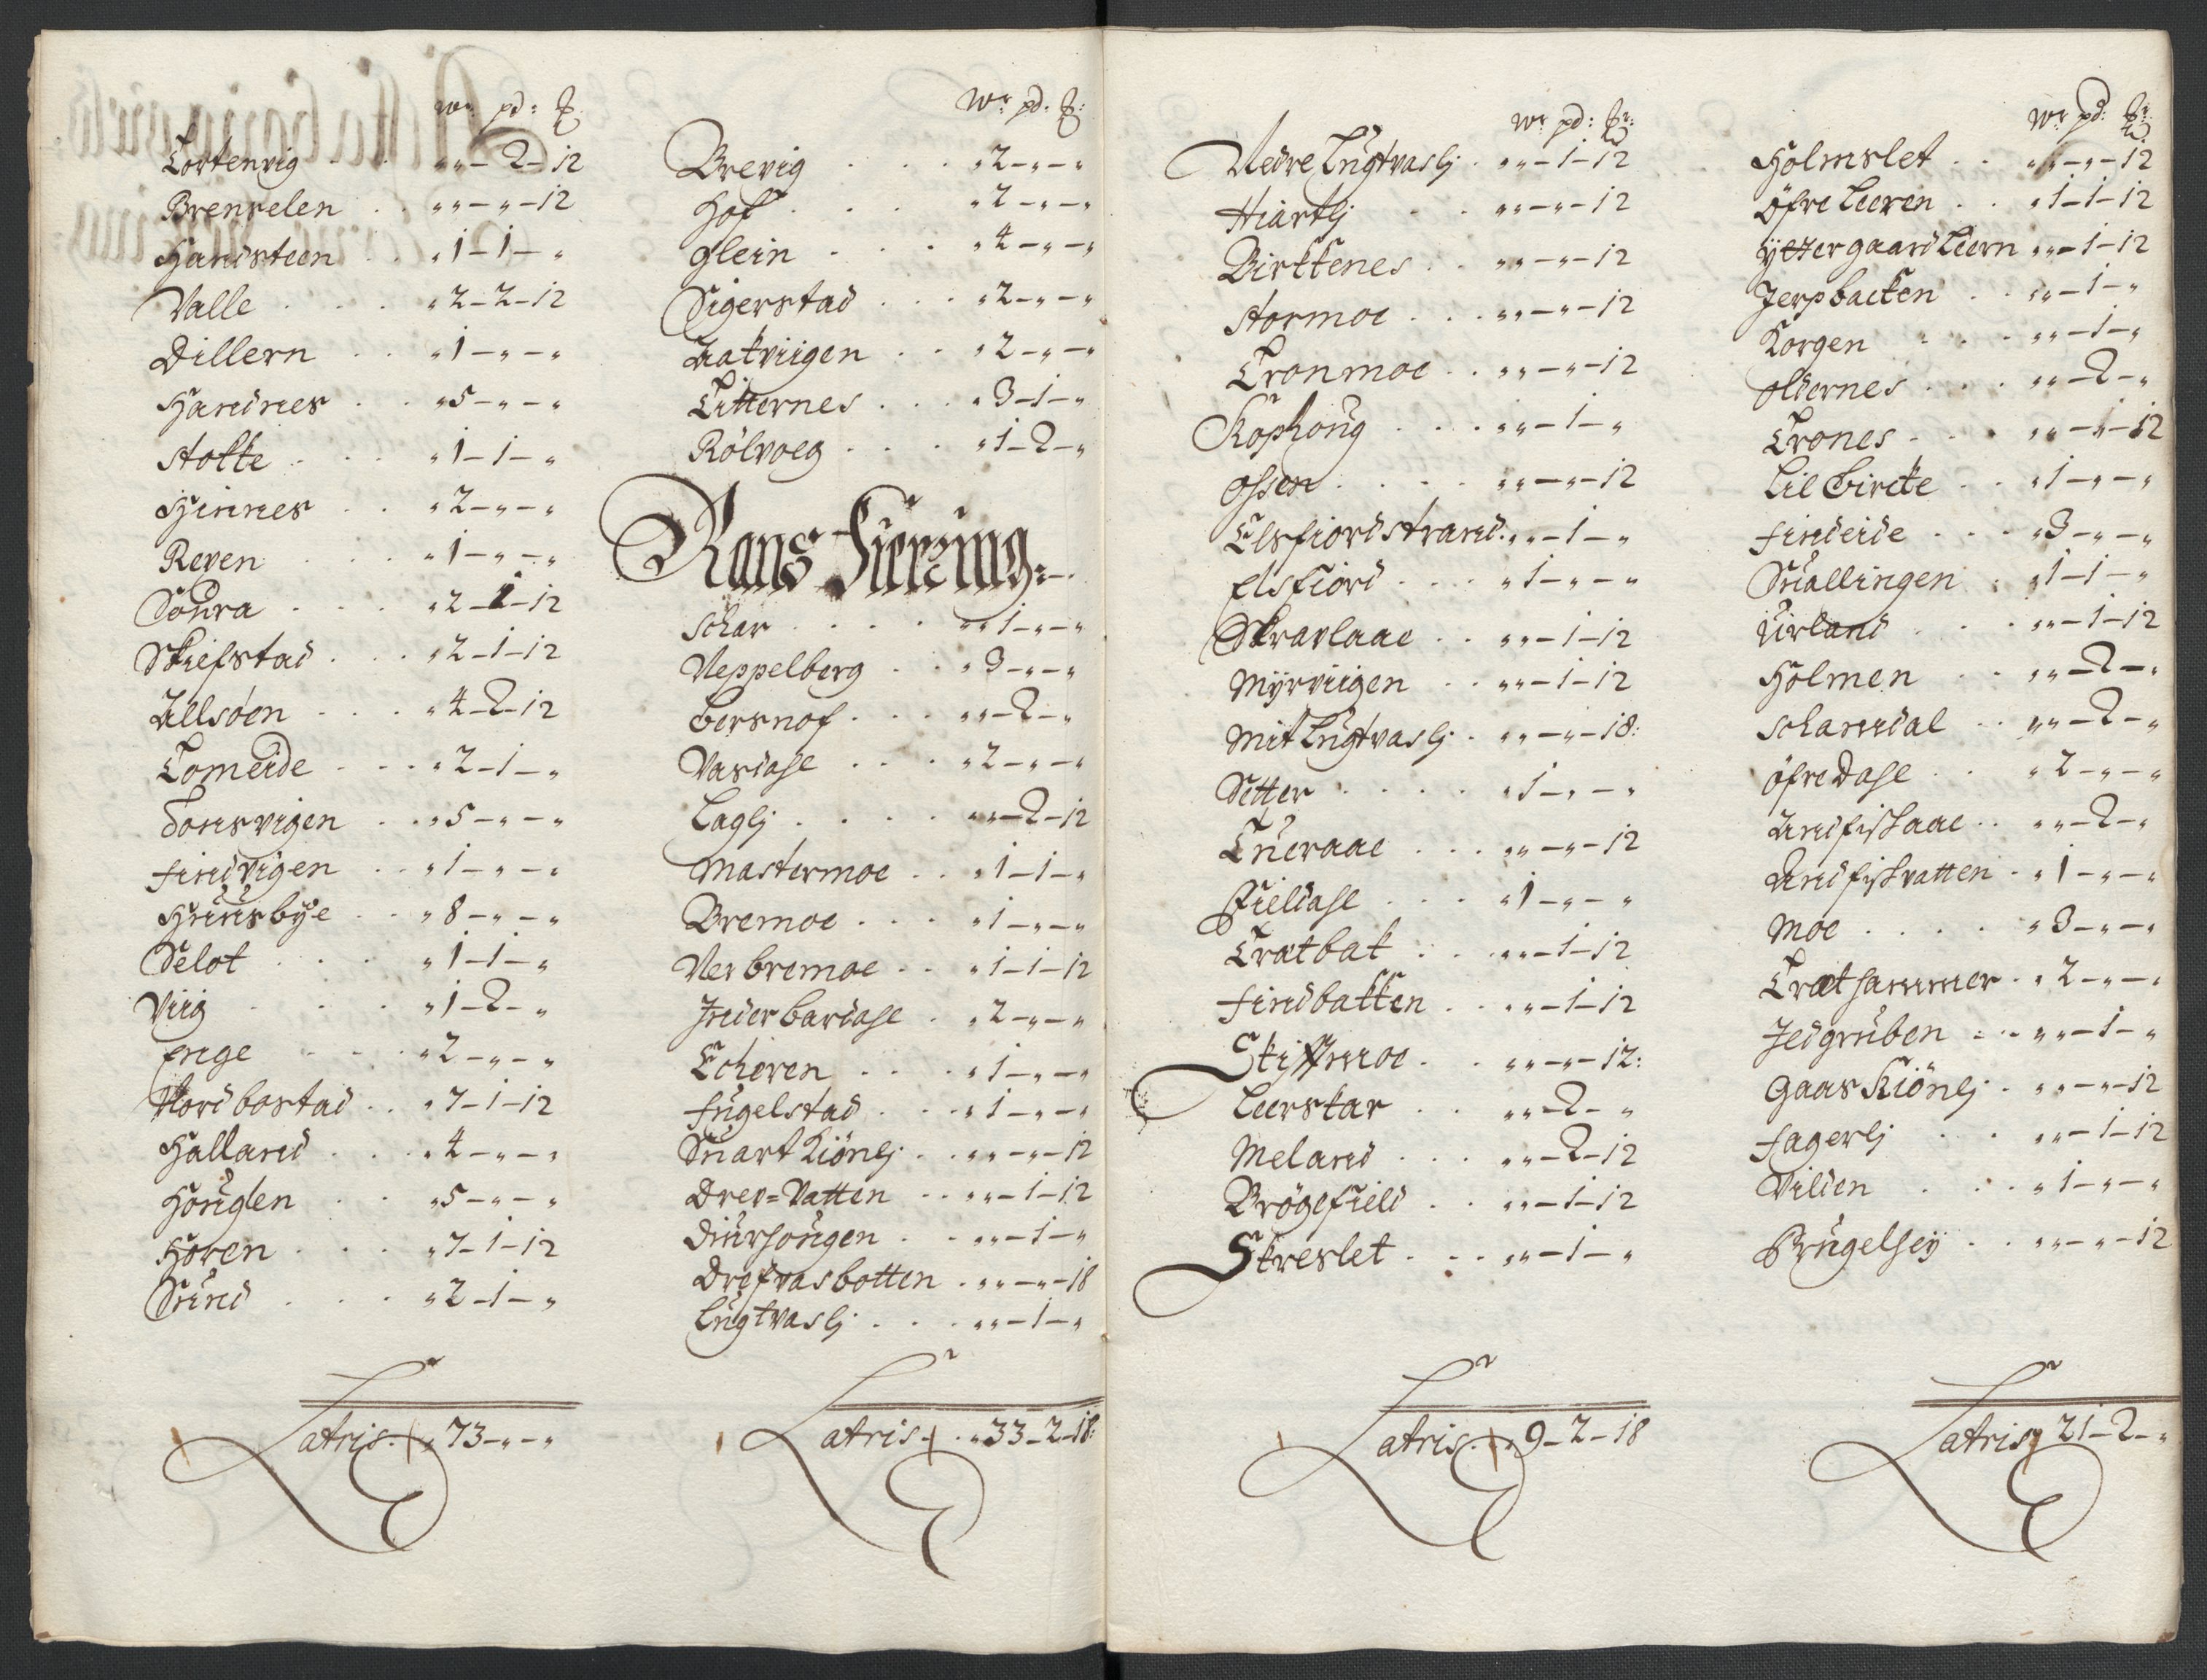 Wr pd: ℔:
Tortenvig . . „„-2-12
Brenselen . . „„-„-12
Handsteen . . „1-1-„
Valle . . . „2-2-12
Dillern . . „1-„-„
Handnes . . „5-„-„
Stokke . . . „1-1-„
Hinnes . . „2-„-„
Reven . . . „1-„-„
Soura . . . „2-1-12
Skiefstad . . „2-1-12
Allsöen . . . „4-2-12
Tomeide . . . „2-1-„
Dønsvigen . . „5-„-„
Findvigen . . „1-„-„
Huusbye . . „8-„-„
Selot . . . „1-1-„
Viig . . . „1-2-„
Enge . . . „2-„-„
Nord bostad . . „7-1-12
Halland . . . „4-„-„
Houglen . . „5-„-„
Horen . . . „7-1-12
Sund . . . „2-1-„
Latris . „73-„-„
Wr pd. ℔:
Brevig . . . „2-„-„
Hof . . . „2-„-„
Glein . . . „4-„-„
Sigerstad . . . „2-„-„
Aakviigen . . „2-„-„
Titternes . . . „3-1-„
Rölvoeg . . . „1-2-„
Rans Fierring:
Schar . . . . „1-„-„
Neppelberg . . „3-„-„
Bersnof . . . „„-2-„
Vasdahl . . . „2-„-„
Laglj . . . . „„-2-12
Mastermoe . . „1-1-„
Bremoe . . . „1-„-„
Ner bremoe . . „1-1-12
Inder bardahl . „2-„-„
Echeren . . . „1-„-„
Fugelstad . . . „1-„-„
Suart Kiönlj . . „„-„-12
Drev=Vatten . . „„-1-12
Diurhougen . . „„-1-„
Drefvasbotten . „„-„-18
Lugtvaslj . . . „„-1-„
Latris . „33-2-18:
Wr pd: ℔:
Nedre Lugtvaslj . „„-1-12
Hiartlj . . „„-„-12
Birkkenes . . „„-„-12
Stormoe . . . „„-„-12
Cronmoe . . „„-„-12
Kophoug . . . „„-1-„
Ossen . . . . „„-„-12
Elsfiordstrand . „„-1-„
Elsfiord . . . „1-„-„
Skravlaae . . „„-1-12
Myrviigen . . „„-1-12
Mit Lugtvaslj . „„-„-18:
Setter . . . . „1-„-„
Tueraae . . . „„-„-12
Fieldahl . . . „1-„-„
Tratbak . . . „„-1-12
Findbakken . . „„-1-12
Skiffmoe . . „„-„-12:
Leerskar . . „„-2-„
Meland . . . „„-2-12
Brögefield . . „„-1-12
Skreslet . . . „„-1-„
Latris . „9-2-18
Wr pd: ℔:
Holmslet . . „„-„-12
Öfre Leeren . . „1-1-12
Yttergaard Leern „„-1-12
Jerpbacken . . „„-1-„
Korgen . . . „„-1-„
Oldernes . . . „„-2-„
Crones . . . „„-„-12
Lil bircke . . „1-„-„
Findeide . . . „3-„-„
Suallingen . „1-1-„
Urland . . . „„-1-12
Holmen . . „„-2-„
Schamdal . . „„-2-„
Öfre Dahl . . „2-„-„
Andfiskaae . . „„-2-„
Andfiskvatten . „1-„-„
Moe . . . . „3-„-„
Trathammer . „2-„-„
Jedgruben . . „„-1-„
Gaas Kiönlj . „„-„-12
Fagerlj . . . „„-1-12
Vilden . . . „1-„-„
Brugelhey . . „„-„-12
Latris „21-2-„